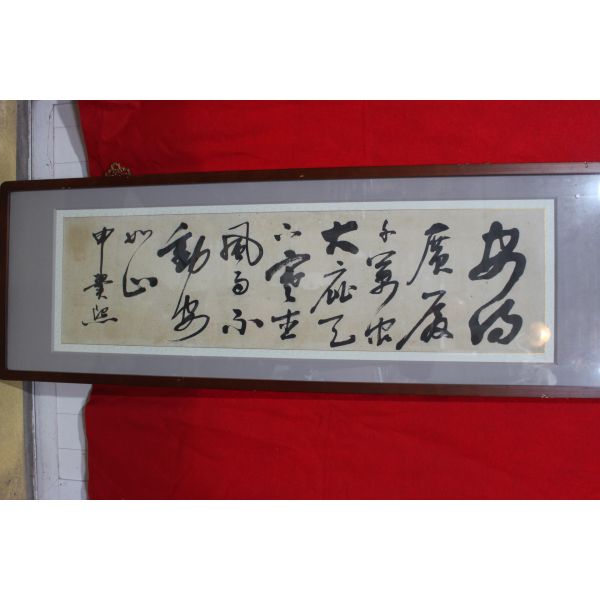 安得
廣厦
千萬間
大庇天
下寒士
風雨不
動安
如山
申翼熙